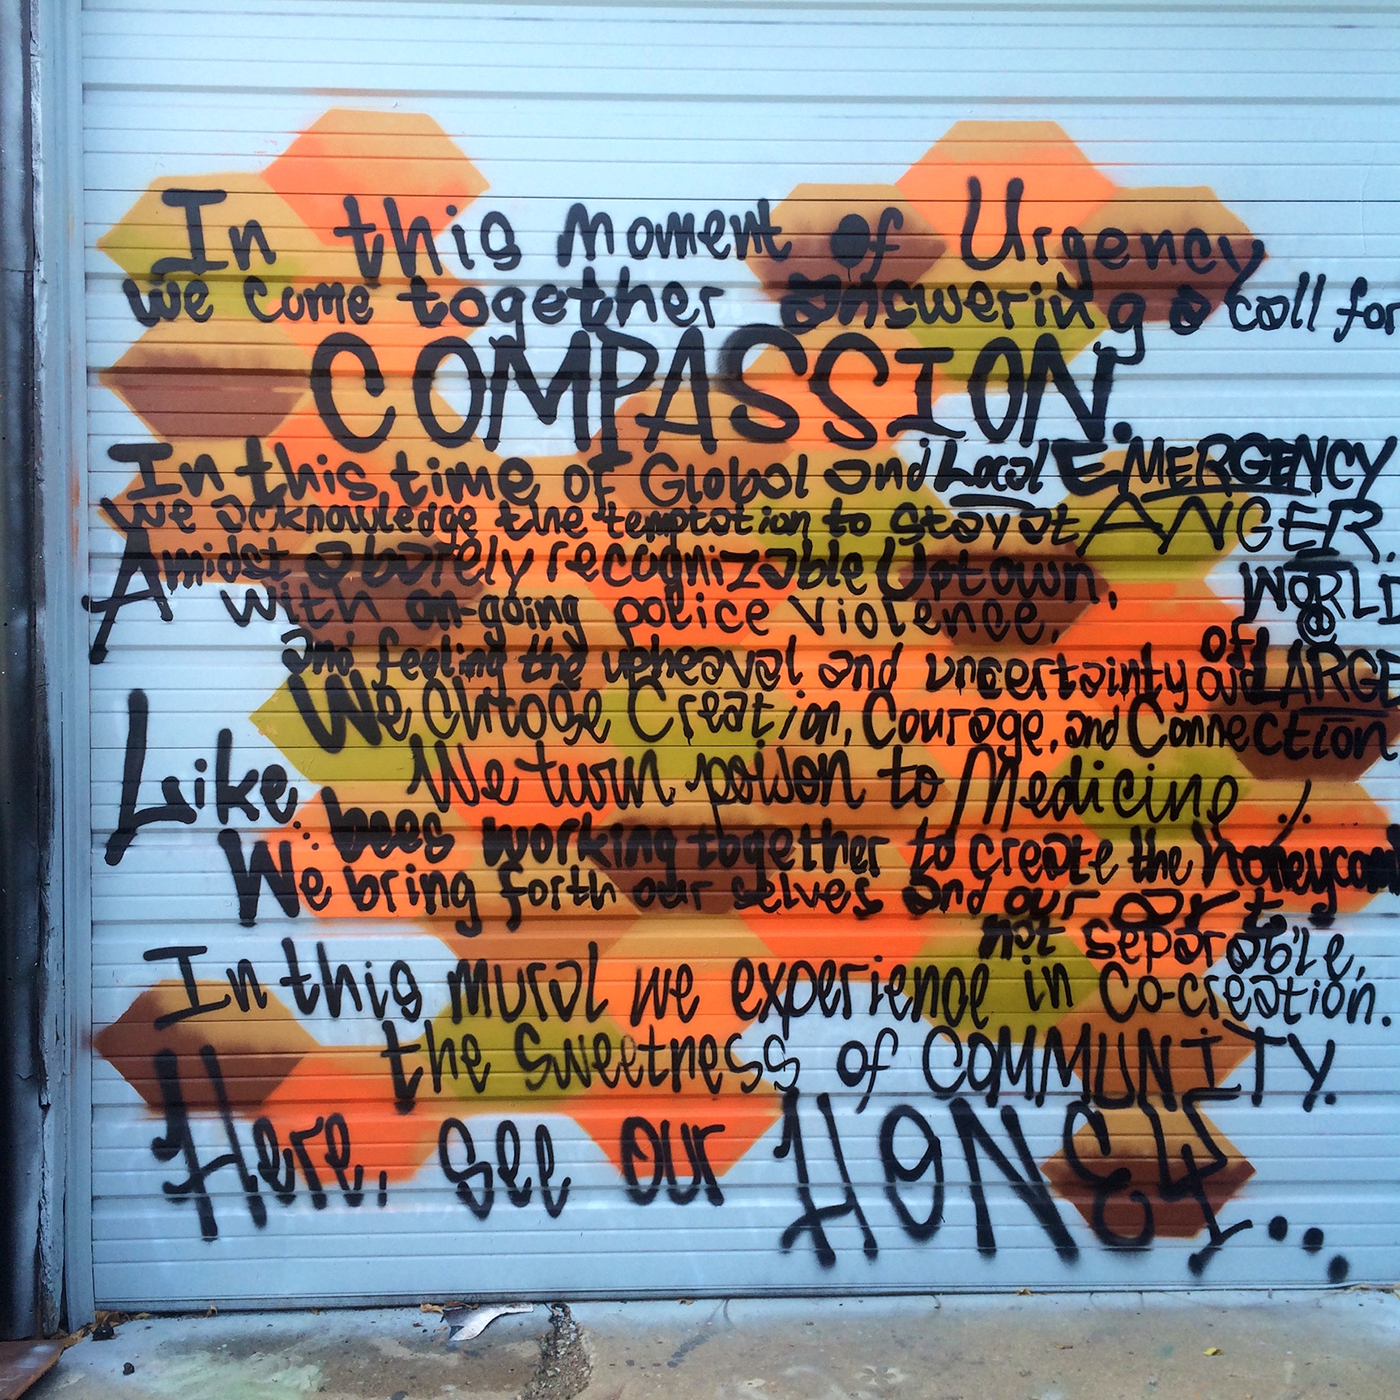 In this moment of Urgency
we come together answering a call for
COMPASSION.
In this time of Global and Local EMERGENCY
we acknowledge the temptation to stay at ANGER.
Amidst a barely recognizable Uptown,
with on-going police violence,
and feeling the upheaval and uncertainty of our LARGE WORLD
We CHOOSE Creation, Courage, and Connection
We turn poison to Medicine...
Like bees working together to create the honeycomb
We bring forth our selves and our art
not separable,
In this mural we experience in Co-creation.
the sweetness of COMMUNITY.
Here, see our HONEY...